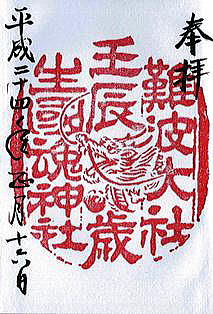 奉拝
難波大社
壬辰歳
生國魂神社
平成二十四年正月十六日